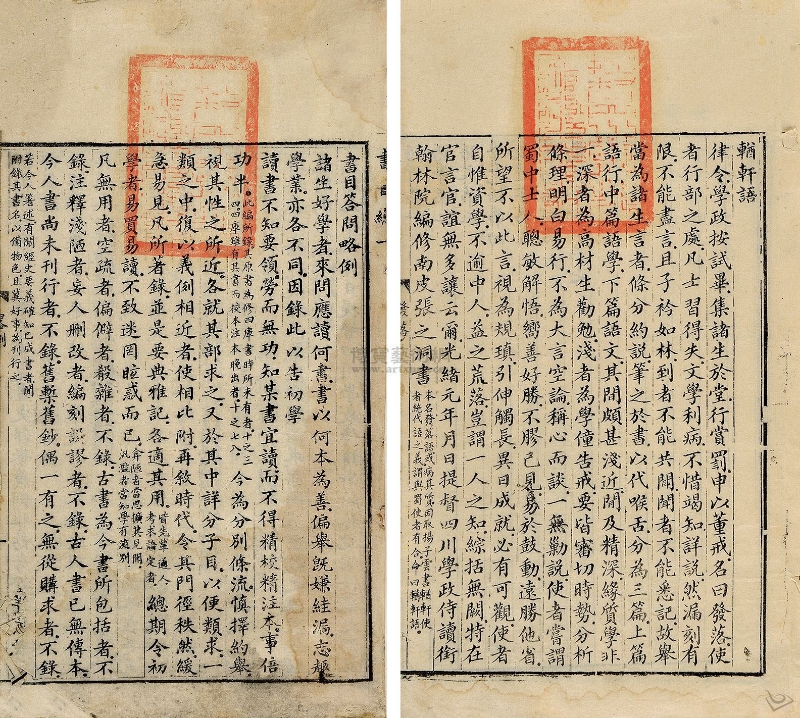 輶軒語
律令學政按試畢集諸生於堂行賞罰申以董戒名曰發落使
者行部之處凡士習得失文學利病不惜竭知詳說然漏刻有
限不能盡言且子衿如林到者不能共聞聞者不能悉記故舉
當為諸生言者條分約說筆之於書以代喉舌分為三篇上篇
語行中篇語學下篇語文其間頗甚淺近間及精深緣質學非
一深者為高材生勸勉淺者為學僮告戒要皆審切時勢分析
條理明白易行不為大言空論稱心而談一無勦說使者嘗謂
蜀中士人聰敏解悟嚮善好勝不膠己見易於鼓動遠勝他省
所望不以此言視為規瑱引伸觸長異日成就必有可觀使者
自惟資學不逾中人益之荒落豈謂一人之知綜括無闕特在
官言官誼無多讓云爾光緒元年月日提督四川學政侍讀銜
翰林院編修南皮張之洞書
本名發落語或病其質因取揚子雲書輶軒使
者絕代語之義謂與蜀使者有合命曰輶軒語
書目答問略例
諸生好學者來問應讀何書書以何本為善偏舉既嫌絓漏志趣
學業亦各不同因錄此以告初學
讀書不知要領勞而無功知某書宜讀而不得精校精注本事倍
功半
此編所錄其原書為修四庫書時所未有者十之三
四四庫雖有其書而校本注本晚出者十之七八
今為分別條流慎擇約舉
視其性之所近各就其部求之又於其中詳分子目以便類求一
類之中復以義例相近者使相比附再敘時代令其門徑秩然緩
急易見凡所著錄並是要典雅記各適其用
皆先輩通人
考求論定者
總期令初
學者易買易讀不致迷罔眩惑而已
弇陋者當思擴其見聞
汎濫者當知學有流別
凡無用者空疏者偏僻者殽雜者不錄古書為今書所包括者不
錄注釋淺陋者妄人刪改者編刻譌謬者不錄古人書已無傳本
今人書尚未刊行者不錄舊槧舊鈔偶一有之無從購求者不錄
若今人著述有關經史要義確知已成書者間
附錄其書名以備物色且冀好事為刊行之